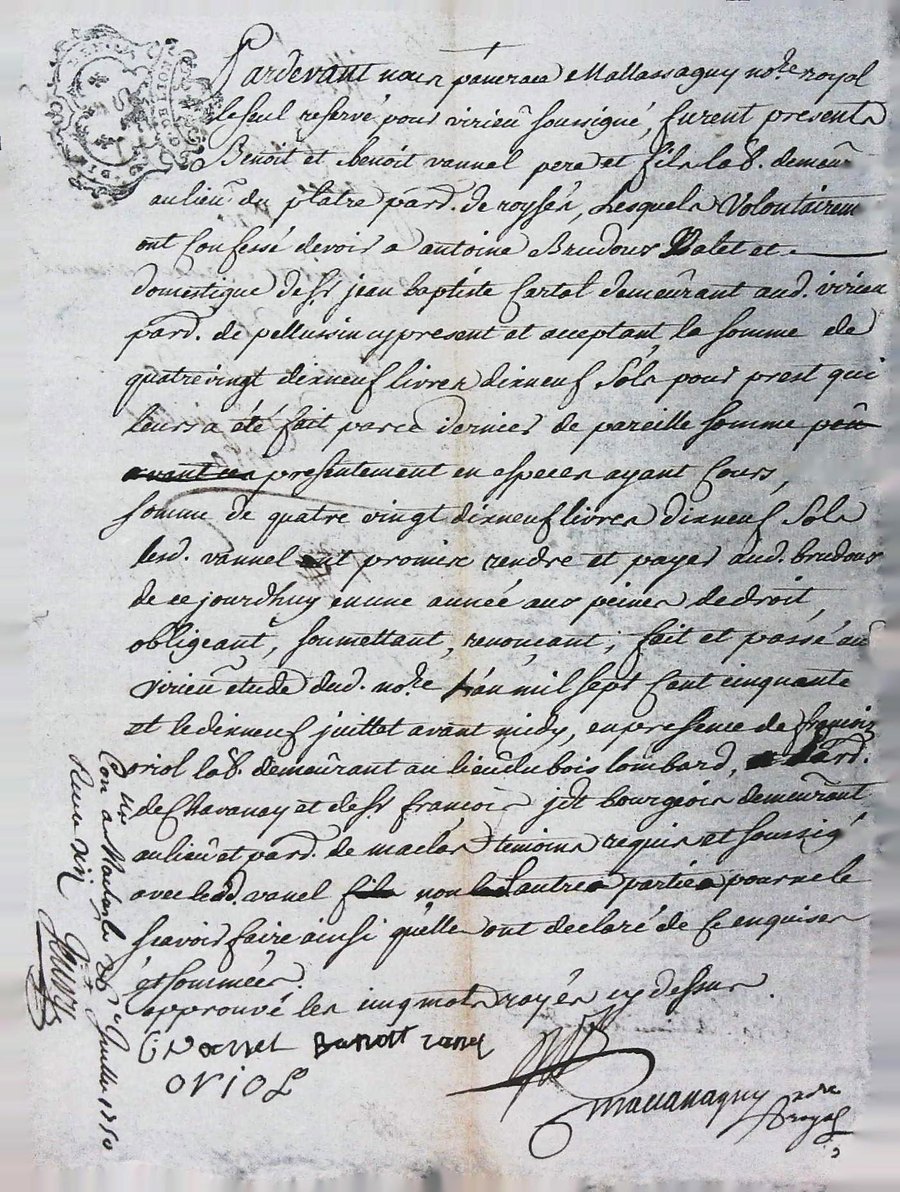 Pardevant nous pancrace Mallassagny no.re royal
le seul reservé pour virieu soussigné, furent presents
Benoit et benoit vannel pere et fils lab.rs demeur
au lieu du platre par.d de roysey, lesquels Volontairem
ont Confessé devoir a antoine Brudous Valet et
domestique de Sr jean baptiste Cartal demeurant aud. virieu
par.d de pellussin cy present et acceptant la somme de
quatre vingt dixneuf livres dixneuf Sols pour prest qui
leurs a été fait par ce dernier de pareille somme
presentement en especes ayant Cours,
somme de quatre vingt dixneuf livres dixneuf Sols
lesd. vannel ont promis rendre et payer aud. brudous
de ce jourdhuy en une année aux peines de droit,
obligeant, soumettant, renonçant, fait et passé aud
virieu etude dud. no.re l'an mil sept Cent cinquante
et le dixneuf juillet avant midy, en presence de françois
oriol lab.r demeurant au lieu du bois lombard, par.d
de Chavanay et de Sr françois jct bourgeois demeurant
au lieu et par.d de maclas temoins requis et soussig.é
avec led. vanel non l'autre partie pour ne le
sçavoir faire ainsi qu'elle ont declaré de Ce enquises
et sommées.
approuvé les cinq mots rayés cy dessus.
vannel Benoit vanel
oriol
mallassagny no.re
royal
Con.lé a Maclas le 26.e Juillet 1750
Reçu